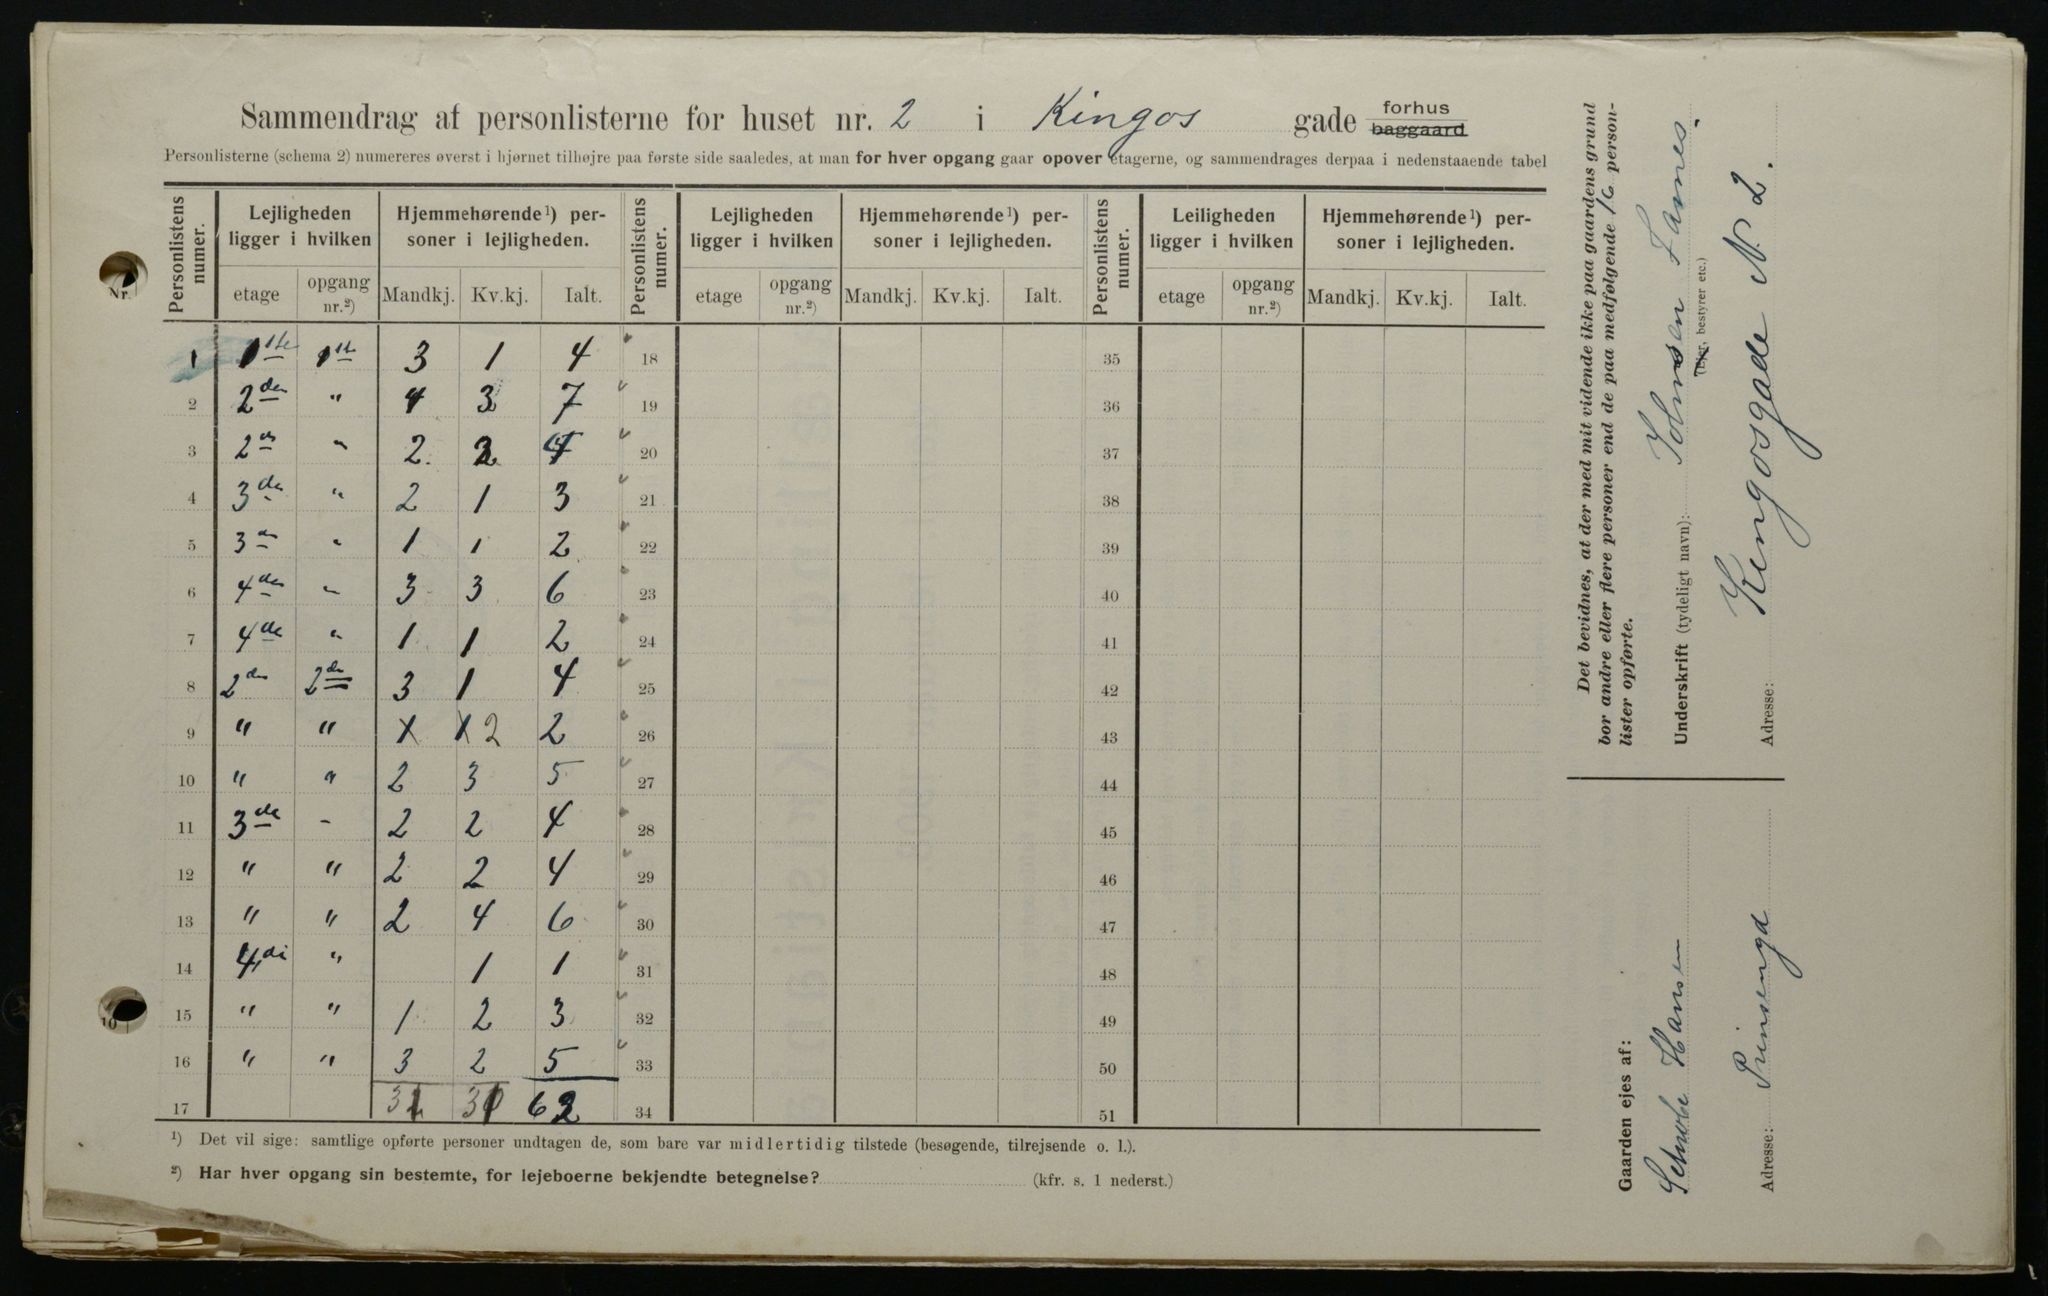 Sammendrag af personlisterne for huset nr. 2 i Kingos gade forhus baggaard
Personlisterne (schema 2) numereres øverst i hjørnet tilhøjre paa første side saaledes, at man for hver opgang gaar opover etagerne, og sammendrages derpaa i nedenstaaende tabel
Personlistens numer. Lejligheden ligger i hvilken Hjemmehørende¹) personer i lejligheden. Personlistens numer. Lejligheden ligger i hvilken Hjemmehørende¹) personer i lejligheden. Personlistens numer. Leiligheden ligger i hvilken Hjemmehørende¹) personer i lejligheden.
Nr.
etage opgang nr.²) Mandkj. Kv.kj. Ialt. etage opgang nr.²) Mandkj. Kv.kj. Ialt. etage opgang nr.²) Mandkj. Kv.kj. Ialt.
1 1ste 1ste 3 1 4 18 35
2 2den " 4 3 7 19 36
3 2den " 2 2 4 20 37
4 3die " 2 1 3 21 38
5 3die " 1 1 2 22 39
6 4de " 3 3 6 23 40
7 4de " 1 1 2 24 41
8 2den 2den 3 1 4 25 42
9 " " x x 2 2 26 43
10 " " 2 3 5 27 44
11 3die - 2 2 4 28 45
12 " " 2 2 4 29 46
13 " " 2 4 6 30 47
14 4de " 1 1 31 48
15 " " 1 2 3 32 49
16 " " 3 2 5 33 50
17 31 31 62 34 51
¹) Det vil sige: samtlige opførte personer undtagen de, som bare var midlertidig tilstede (besøgende, tilrejsende o. l.).
²) Har hver opgang sin bestemte, for lejeboerne bekjendte betegnelse? (kfr. s. 1 nederst.)
Det bevidnes, at der med mit vidende ikke paa gaardens grund
bor andre eller flere personer end de paa medfølgende 16 person-
lister opførte.
Underskrift (tydeligt navn): Johnsen Hannes.
(Ejer, bestyrer etc.)
Adresse: Kingosgade N. 2.
Gaarden ejes af:
Hansen
Adresse: Prinsengd